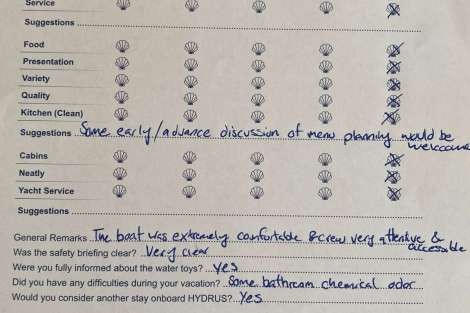 Service
Suggestions
Food
Presentation
Variety
Quality
Kitchen (Clean)
Suggestions Some early/advance discussion of menu planning would be welcome
Cabins
Neatly
Yacht Service
Suggestions
General Remarks The boat was extremely comfortable & crew very attentive & accessible
Was the safety briefing clear? Very clear
Were you fully informed about the water toys? Yes
Did you have any difficulties during your vacation? Some bathroom chemical odor
Would you consider another stay onboard HYDRUS? Yes